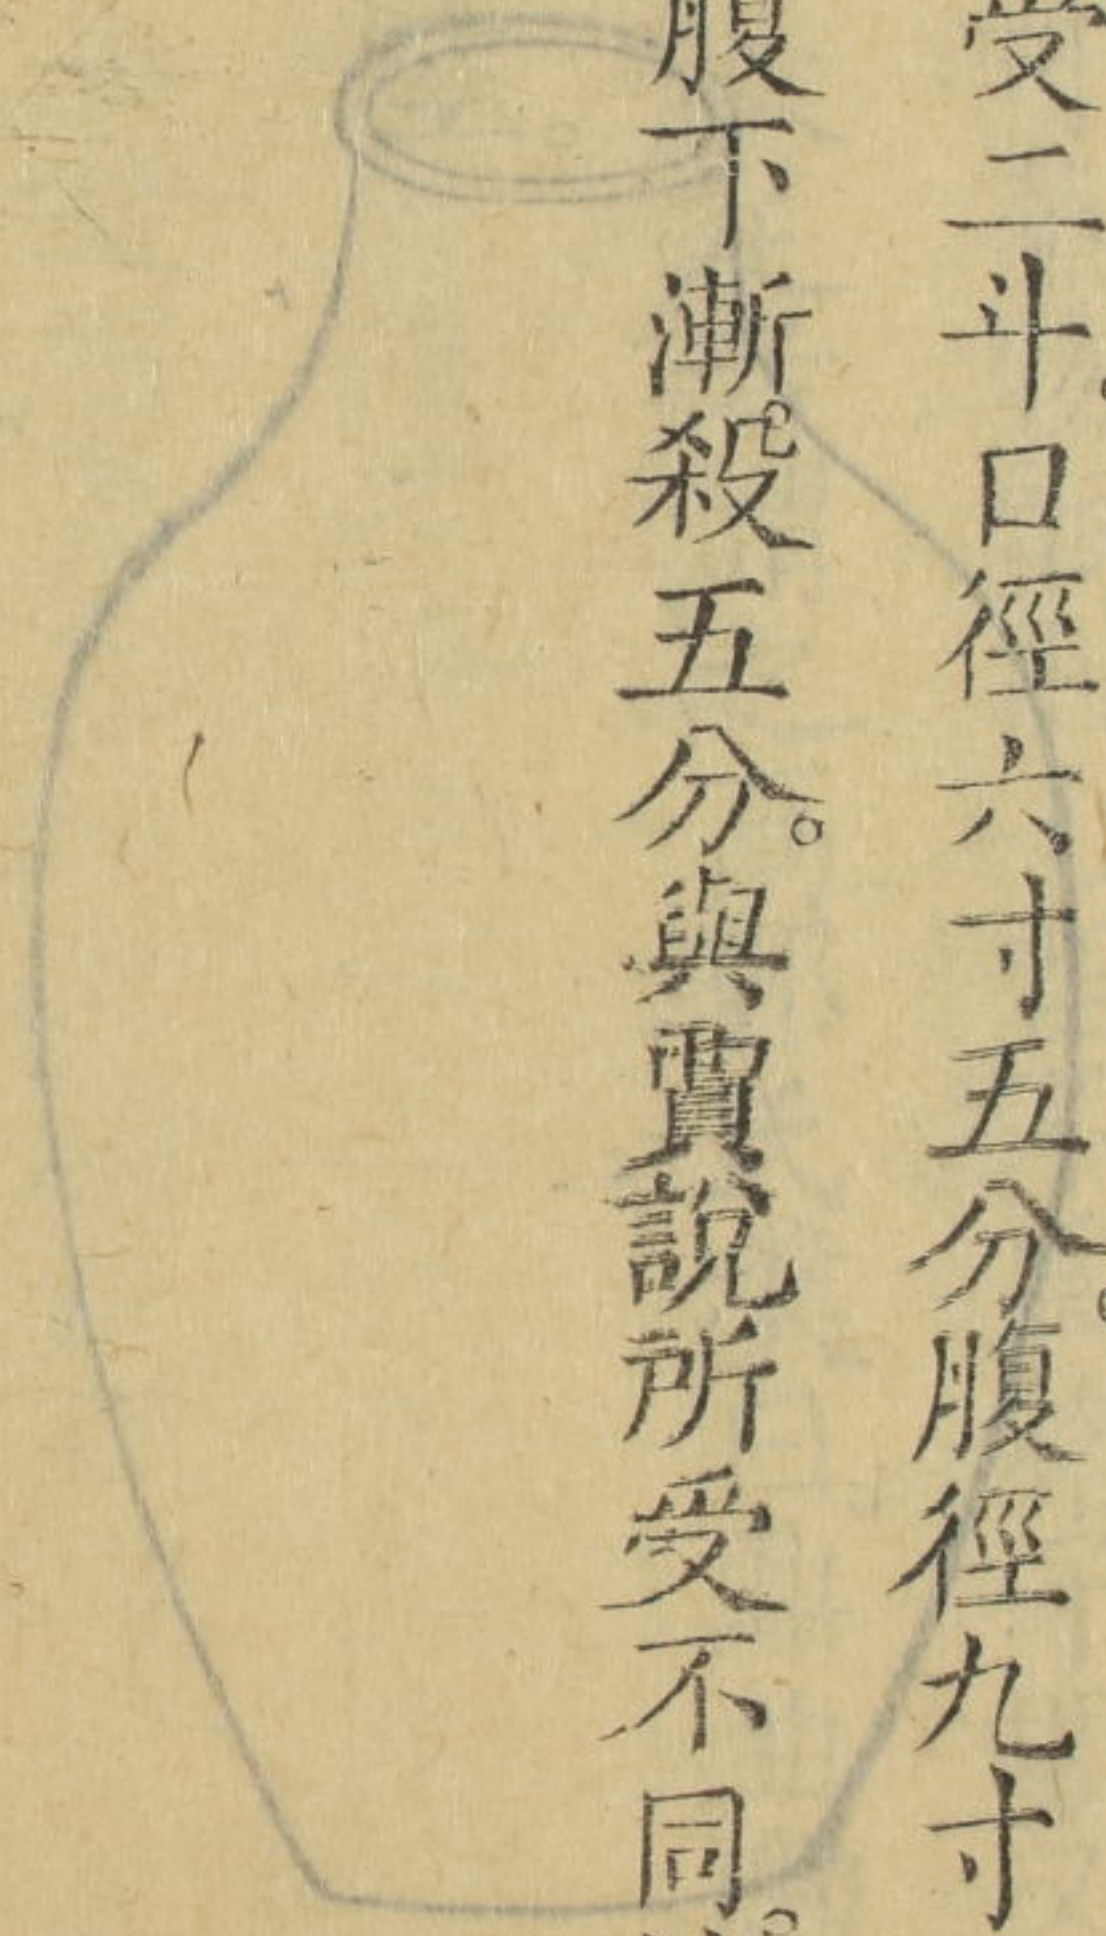 受二斗。口徑六寸五分。腹徑九寸
腹下漸殺。五分。與賈說所受不同。